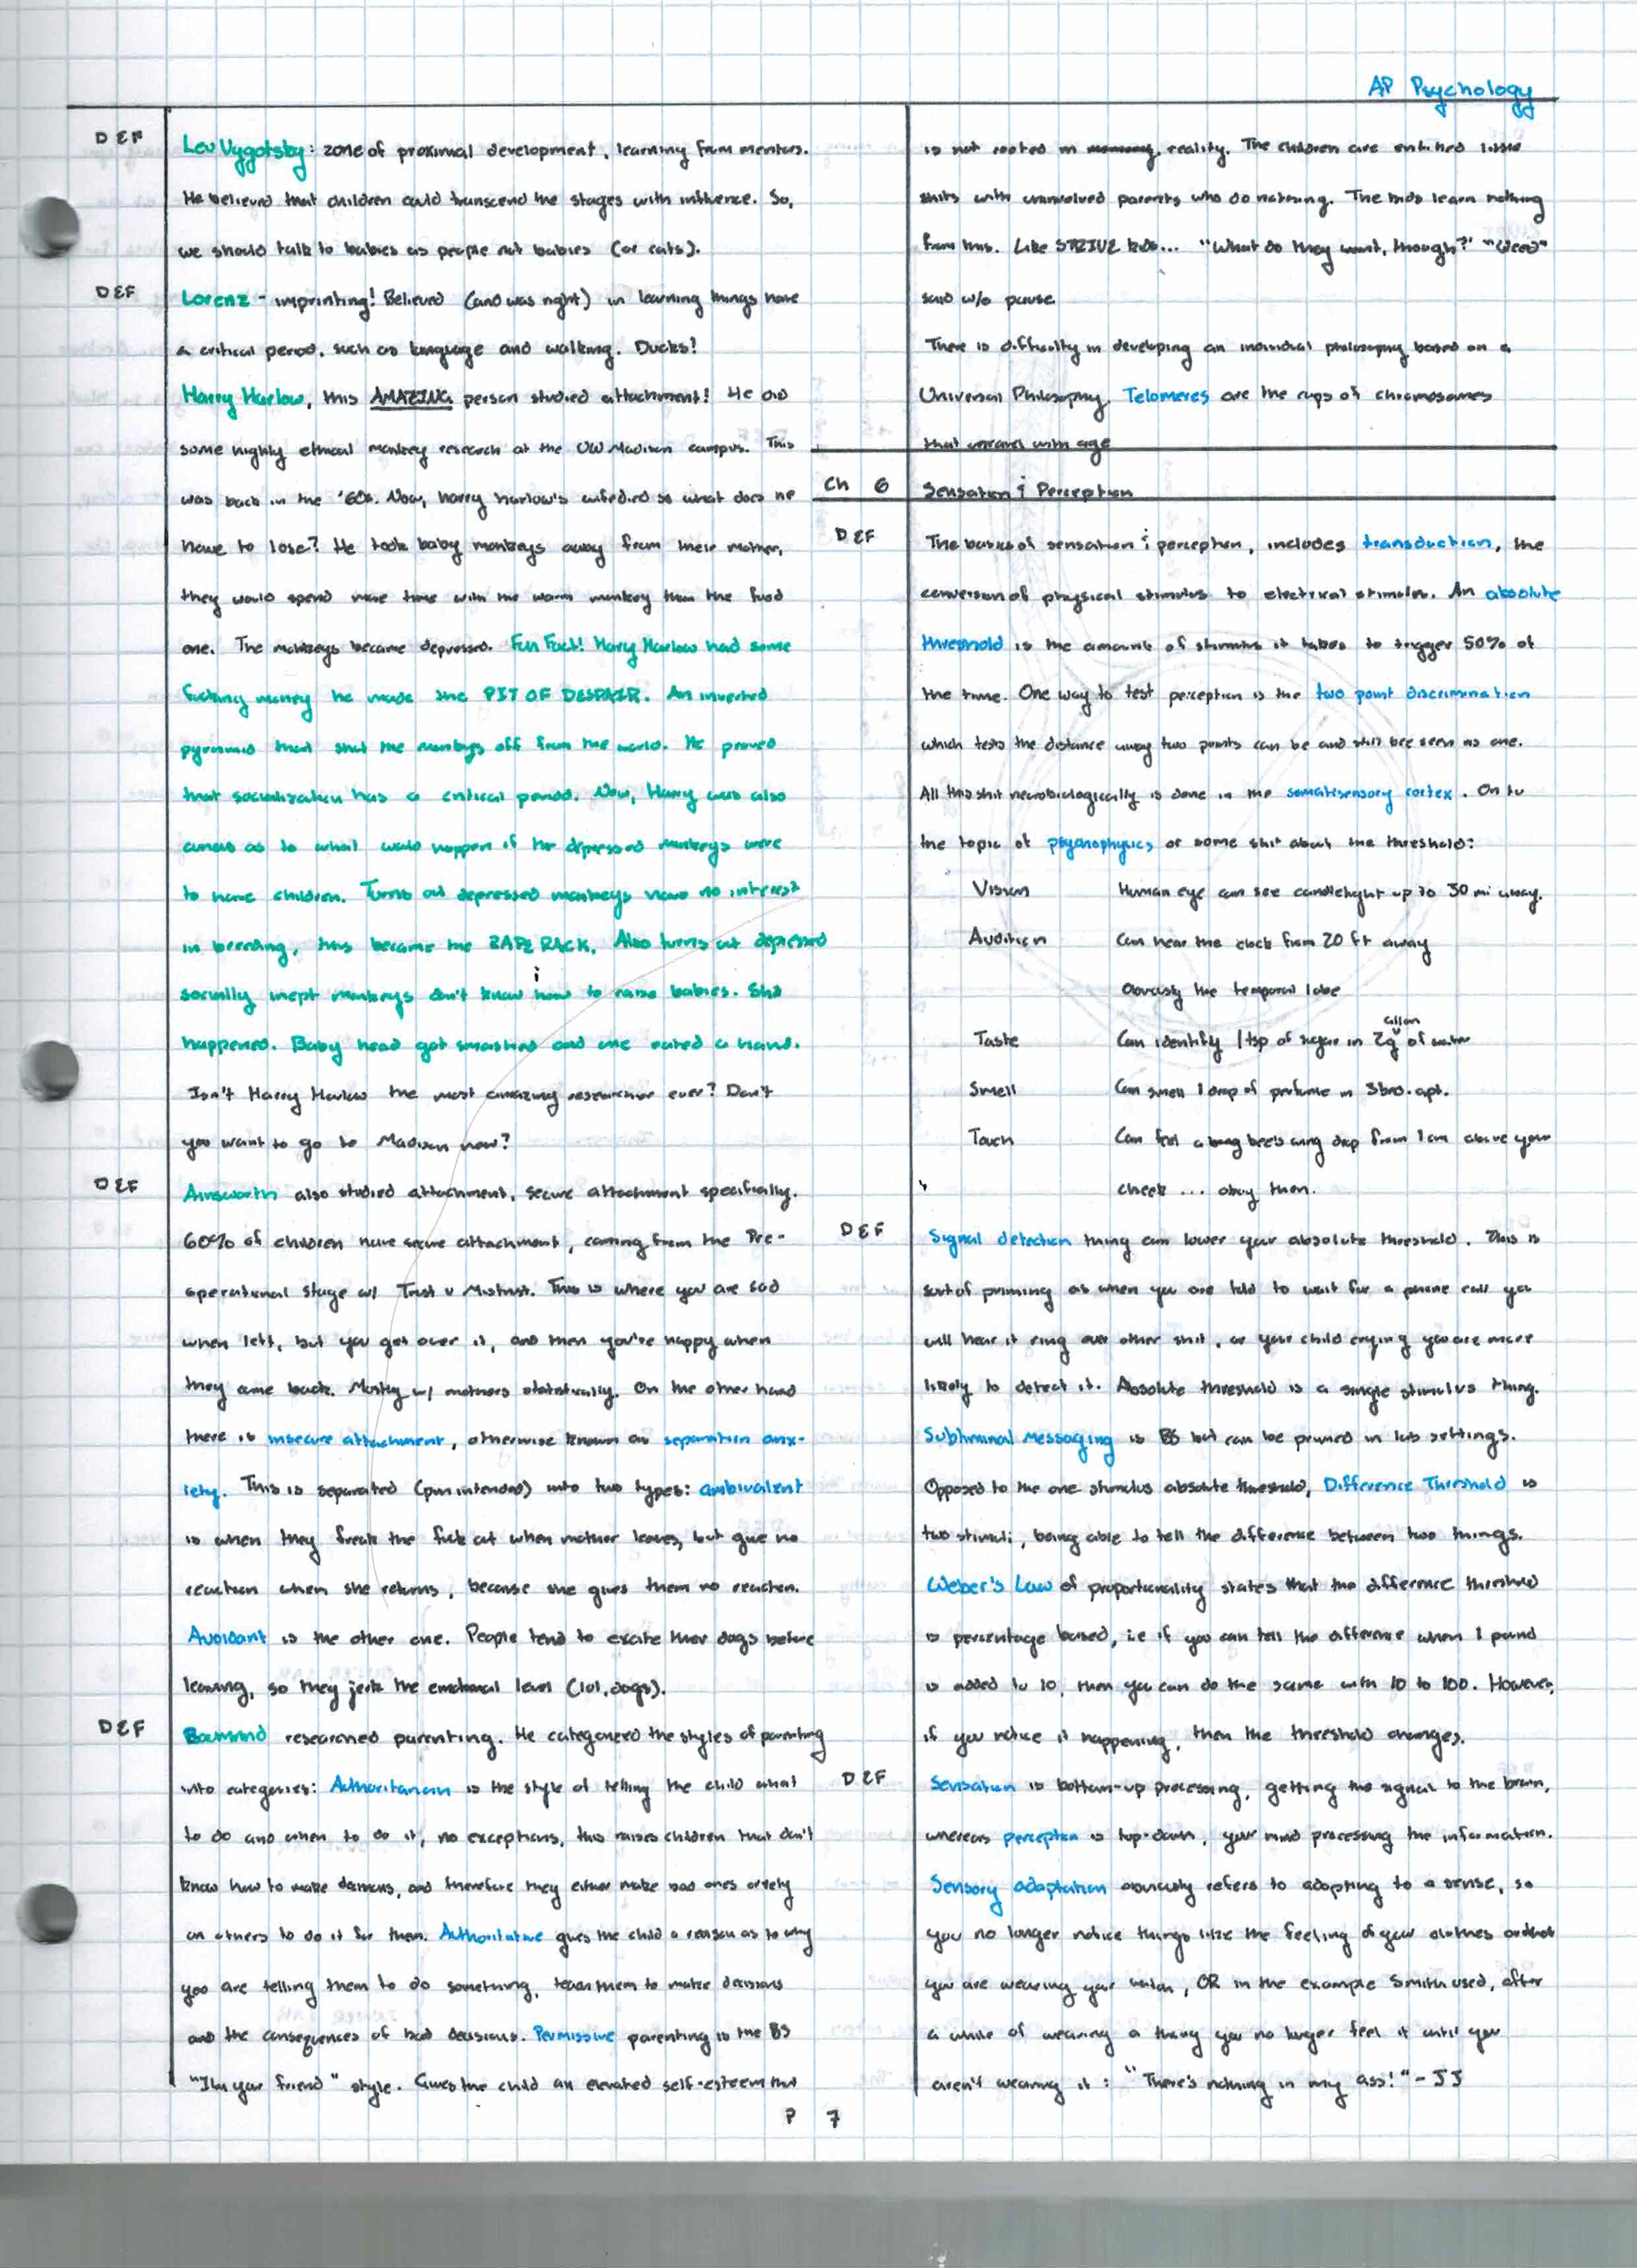 AP Psychology
DEF
Lev Vygotsby: zone of proximal development, learning from mentors.
He believed that children could transcend the stages with influence. So,
we should talk to babies as people not babies (or cats).
DEF
Lorenz - imprinting! Believed (and was right) in learning things have
a critical period, such as language and walking. Ducks!
Harry Harlow, this AMAZING person studied attachment! He did
some highly ethical monkey research at the UW Madison campus. This
was back in the '60s. Now, harry harlow's wife died so what does he
have to lose? He took baby monkeys away from their mother,
they would spend more time with the warm monkey than the food
one. The monkeys became depressed. Fun Fact! Harry Harlow had some
fucking money he made the PIT OF DESPAIR. An inverted
pyramid that shut the monkeys off from the world. He proved
that socialization has a critical period. Now, Harry was also
curious as to what would happen if the depressed monkeys were
to have children. Turns out depressed monkeys have no interest
in breeding, this became the RAPE RACK. Also turns out depressed
i
socially inept monkeys don't know how to raise babies. Shit
happened. Baby head got smashed and one eated a hand.
Isn't Harry Harlow the most amazing researcher ever? Don't
you want to go to Madison now?
DEF
Ainsworth also studied attachment, secure attachment specifically.
60% of children have secure attachment, coming from the Pre-
operational stage w/ Trust v Mistrust. This is where you are sad
when left, but you get over it, and then you're happy when
they come back. Mostly w/ mothers statistically. On the other hand
there is insecure attachment, otherwise known as separation anx-
iety. This is separated (pun intended) into two types: ambivalent
is when they freak the fuck out when mother leaves, but give no
reaction when she returns, because she gives them no reaction.
Avoidant is the other one. People tend to excite their dogs before
leaving, so they jerk the emotional level (lol, dogs).
DEF
Baumrind researched parenting. He categorized the styles of parenting
into categories: Authoritarian is the style of telling the child what
to do and when to do it, no exceptions, this raises children that don't
know how to make decisions, and therefore they either make bad ones or rely
on others to do it for them. Authoritative gives the child a reason as to why
you are telling them to do something, teach them to make decisions
and the consequences of bad decisions. Permissive parenting is the BS
"I'm your friend" style. Gives the child an elevated self-esteem that
is not rooted in reality. The children are entitled little
shits with uninvolved parents who do nothing. The kids learn nothing
from this. Like STRIVE kids... "What do they want, though?" "Weed"
said w/o pause
There is difficulty in developing an individual philosophy based on a
Universal Philosophy. Telomeres are the caps of chromosomes
that unravel with age
Ch 6 Sensation & Perception
DEF
The basics of sensation & perception, includes transduction, the
conversion of physical stimulus to electrical stimulus. An absolute
threshold is the amount of stimulus it takes to trigger 50% of
the time. One way to test perception is the two point discrimination
which tests the distance away two points can be and still bee seen as one.
All this shit neurobiologically is done in the somatisensory cortex. On to
the topic of psychophysics or some shit about the threshold:
Vision Human eye can see candlelight up to 30 mi away.
Audition Can hear the clock from 20 ft away
Obviously the temporal lobe
allon
Taste Can identify 1 tsp of sugar in 2g of water
Smell Can smell 1 drop of perfume in 3bro. apt.
Touch Can feel a bee's wing drop from 1 cm above your
cheek ... okay then.
DEF
Signal detection thing can lower your absolute threshold. This is
sort of priming as when you are told to wait for a phone call you
will hear it ring over other shit, or your child crying you are more
likely to detect it. Absolute threshold is a single stimulus thing.
Subliminal Messaging is BS but can be primed in lab settings.
Opposed to the one stimulus absolute threshold, Difference Threshold is
two stimuli, being able to tell the difference between two things.
Weber's Law of proportionality states that the difference threshold
is percentage based, i.e if you can tell the difference when 1 pound
is added to 10, then you can do the same with 10 to 100. However,
if you notice it happening, then the threshold changes.
DEF
Sensation is bottom-up processing, getting the signal to the brain,
whereas perception is top-down, your mind processing the information.
Sensory adaptation obviously refers to adapting to a sense, so
you no longer notice things like the feeling of your clothes or that
you are wearing your watch, OR in the example Smith used, after
a while of wearing a thong you no longer feel it until you
aren't wearing it: "There's nothing in my ass!" - JJ
P 7